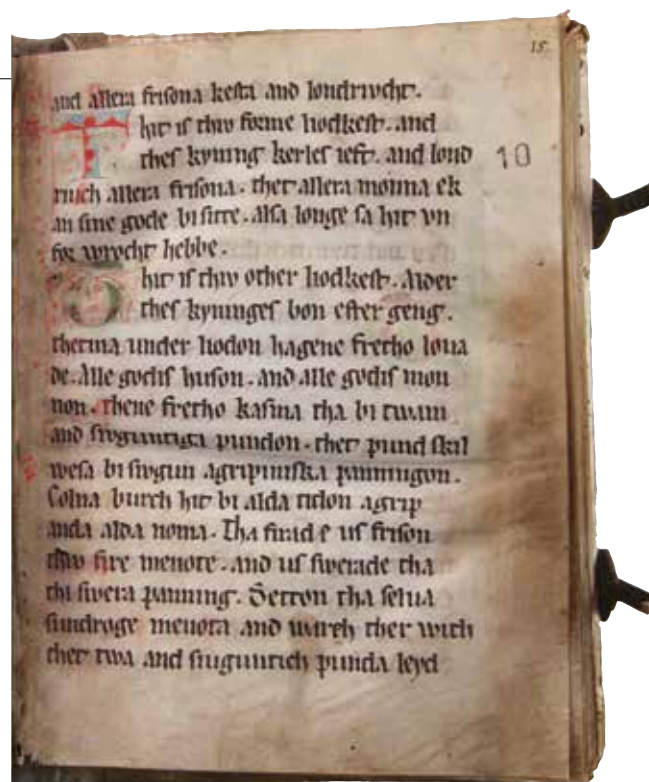 15.
and allera frisona kesta and londriucht.
Thit is thiu forme liodkest. and
thes kyning kerles ieft. and lond
riuch allera frisona. ther allera monna ek
an sine gode bi sitte. alsa longe sa hit vn
for wrocht hebbe.
10
Thit is thiu other liodkest. Ao̅er
thes kyninges bon efter geng.
therma under liodon hagene fretho loua
de. Alle godis huson. and alle godis mon
non. thene fretho kasma tha bi twam
and siuguntiga pundon. ther pund skil
wesa bi siugun agripiniska panningon.
Colna burch hit bi alda tidon agrip
anda alda noma. Tha firade us frison
thiu fire menote. and us swerade tha
thi swera panning. Setton tha selua
sundroge menota and wurth ther with
ther twa and siuguntich punda leyd